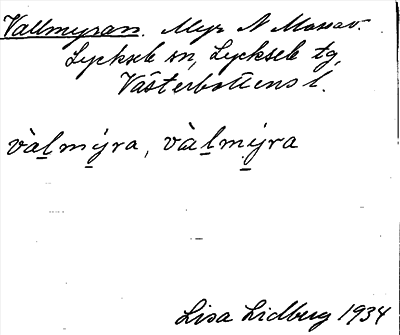 Vallmyran. Myr N Mossav.
Lycksele sn, Lycksele tg,
Västerbottens l.
vàl̲mýra, vàl̲mýra
Lisa Lidberg 1934